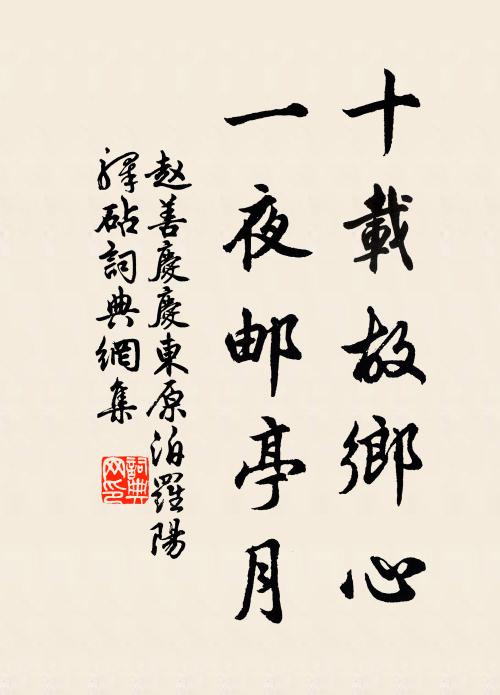 十載故鄉心
一夜邮亭月
赵善慶慶東原泊羅陽
驛砧詞典網集
詞典
网印